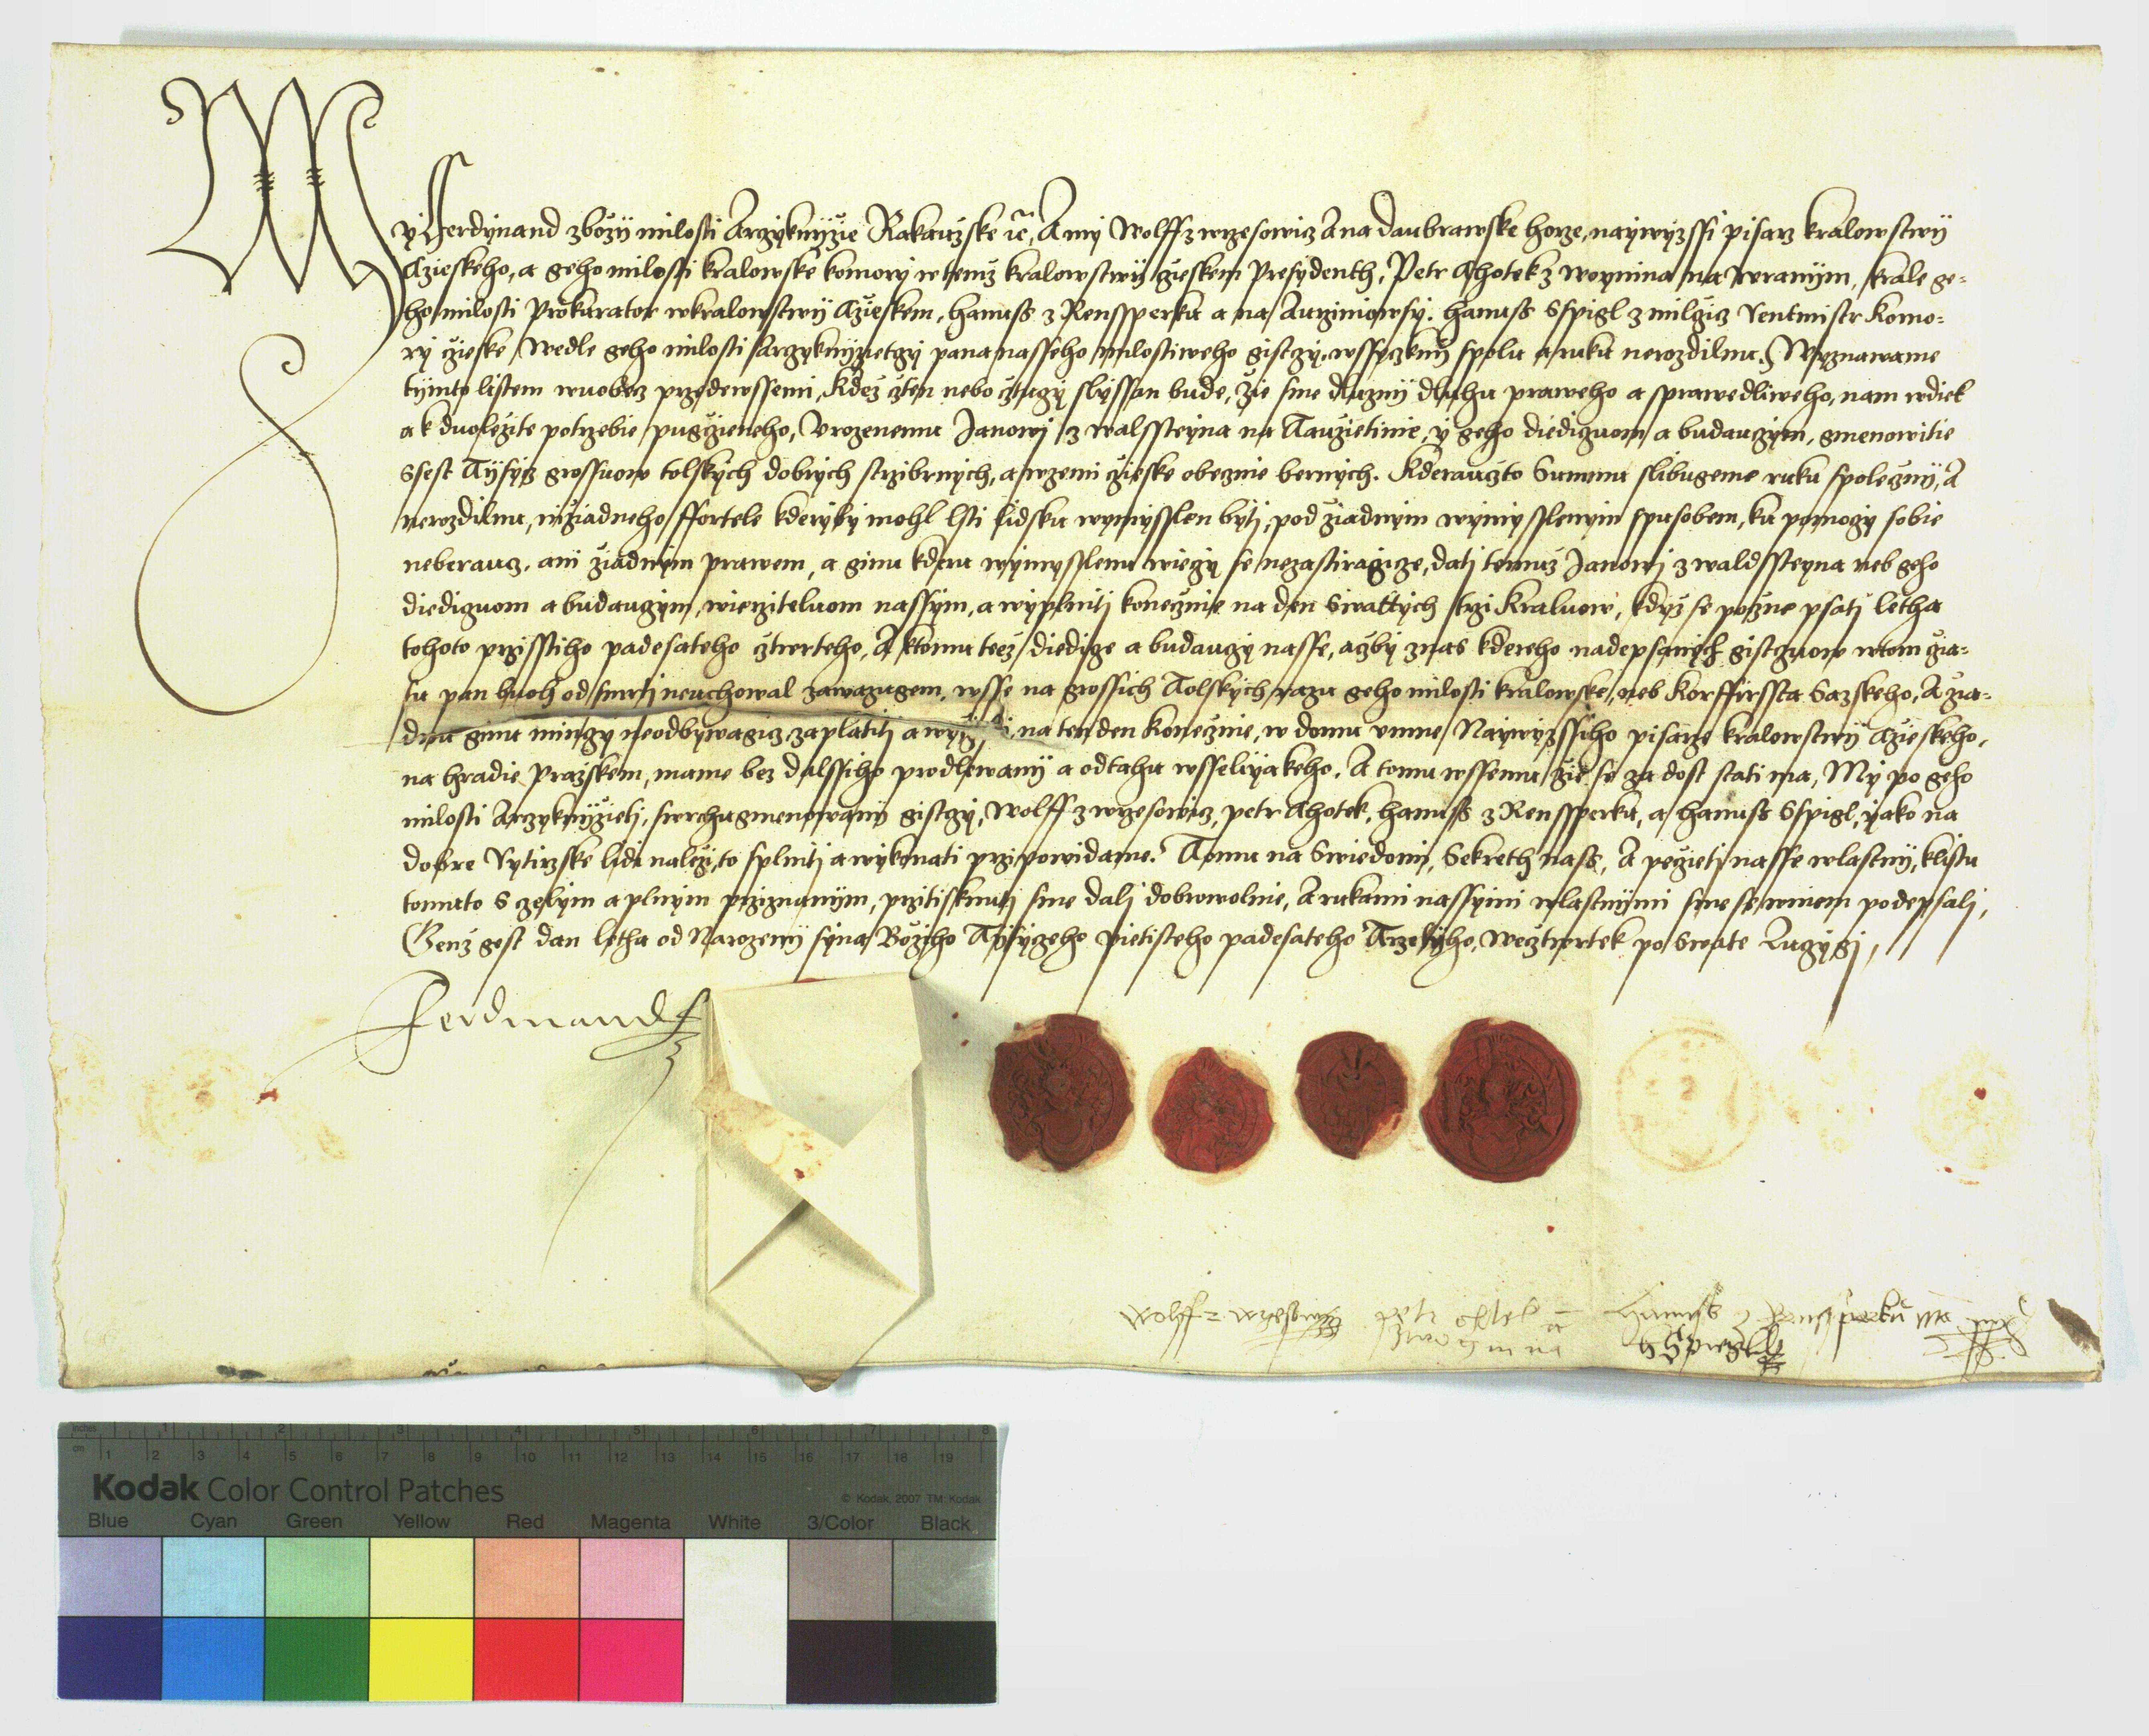 My Ferdynand z božij milosti Arzyknijže Rakauzske ꝛc̃, A my Wolff z wrzesowicz A na daubrawske horze, naywyzssi pisarz kralowstwij
Czieskeho, a geho milosti kralowske komory w temž kralowstwij Czieskem Presydenth, Petr Chotek z woynina na wranijm, krale ge=
ho milosti Prokurator w kralowstwij Czieskem, hanuss z Renssperku a na hanuss Sspigl z milčicz Rentmistr Komo=
ry czieske, Wedle geho milosti Arzyknijzetczy pana nasseho milostiweho gistczy, wssyczkni spolu a ruku nerozdilnu. Wyznawame
tijmto listem wuobecz przedewssemi, Kdež čten nebo čtuczy slyssan bude, že sme dlužnij dluhu praweho a sprawedliweho, nam w diek
a k duoležite potrzebie pugčieneho, Urozenemu Janowi z walssteyna na y geho diediczuom a budauczym, gmenowitie
Ssest Tysycz grossuow tolskych dobrych strzibrnych, a w zemi czieske obecznie bernych. Kderaužto Summu slibugeme ruku spoleczni, A
nerozdilnu, wžiadneho ffortele kderyby mohl lsti lidsku wymysslen byti, pod žiadnym wymysslenym spusobem, ku pomoczy sobie
neberaucz, ani žiadnym prawem, a ginu kderu wymysslenu wieczy se nezastiragicze, dati temuž Janowi z waldssteyna neb geho
diediczuom a budauczym, wierziteluom nassym, a wyplniti konecznie na den Swattych trzi Kraluow, kdyz se počne psati letha
tohoto przisstiho padesateho čtwrteho, A k tomu teež diedicze a budauczy nasse, ačby z nas kdereho nadepsanych gistczuow w tom čia=
su pan buoh od smrti neuchowal zawazugem, wsse na grossich Tolskych razu geho milosti kralowske, neb Korffirssta Sazskeho, A žia=
dnu ginu minczy neodbywagicz zaplatiti a na ten den Konecznie, w domu umne Naywyzssiho pisarze kralowstwij Czieskeho,
na hradie Pražskem, mame bez dalssiho prodlewanij a odtahu wsselijakeho. A tomu wssemu, že se za dost stati ma, My po geho
milosti Arzyknijzieti, swrchugmenowany gistczy, Wolff z wrzesowicz, petr Chotek, hanuss z Renssperku, a hanuss Sspigl, yako na
dobre Rytirzske lidi naleži, to splniti a wykonati przipowidame. Tomu na Swiedomi, Sekreth nass, A pečieti nasse wlastnij, k listu
tomuto S czelym a plnym przyznanijm, przitisknuti sme dali dobrowolnie, A rukami nassymi wlastnijmi sme se w niem podepsali,
Genž gest dan letha od Narozenij syna Božiho Tysyczeho pietisteho padesateho Trzetiho, we cztwrtek po Swate Luczygi,
Ferdinand
Wolff z wrzesowicz petr chotek hanuss z Renssperku
H Spiegll
inches 1 2 3 4 5 6 7 8
cm 1 2 3 4 5 6 7 8 9 10 11 12 13 14 15 16 17 18 19
Kodak Color Control Patches
© Kodak, 2007 TM: Kodak
Blue Cyan Green Yellow Red Magenta White 3/Color Black